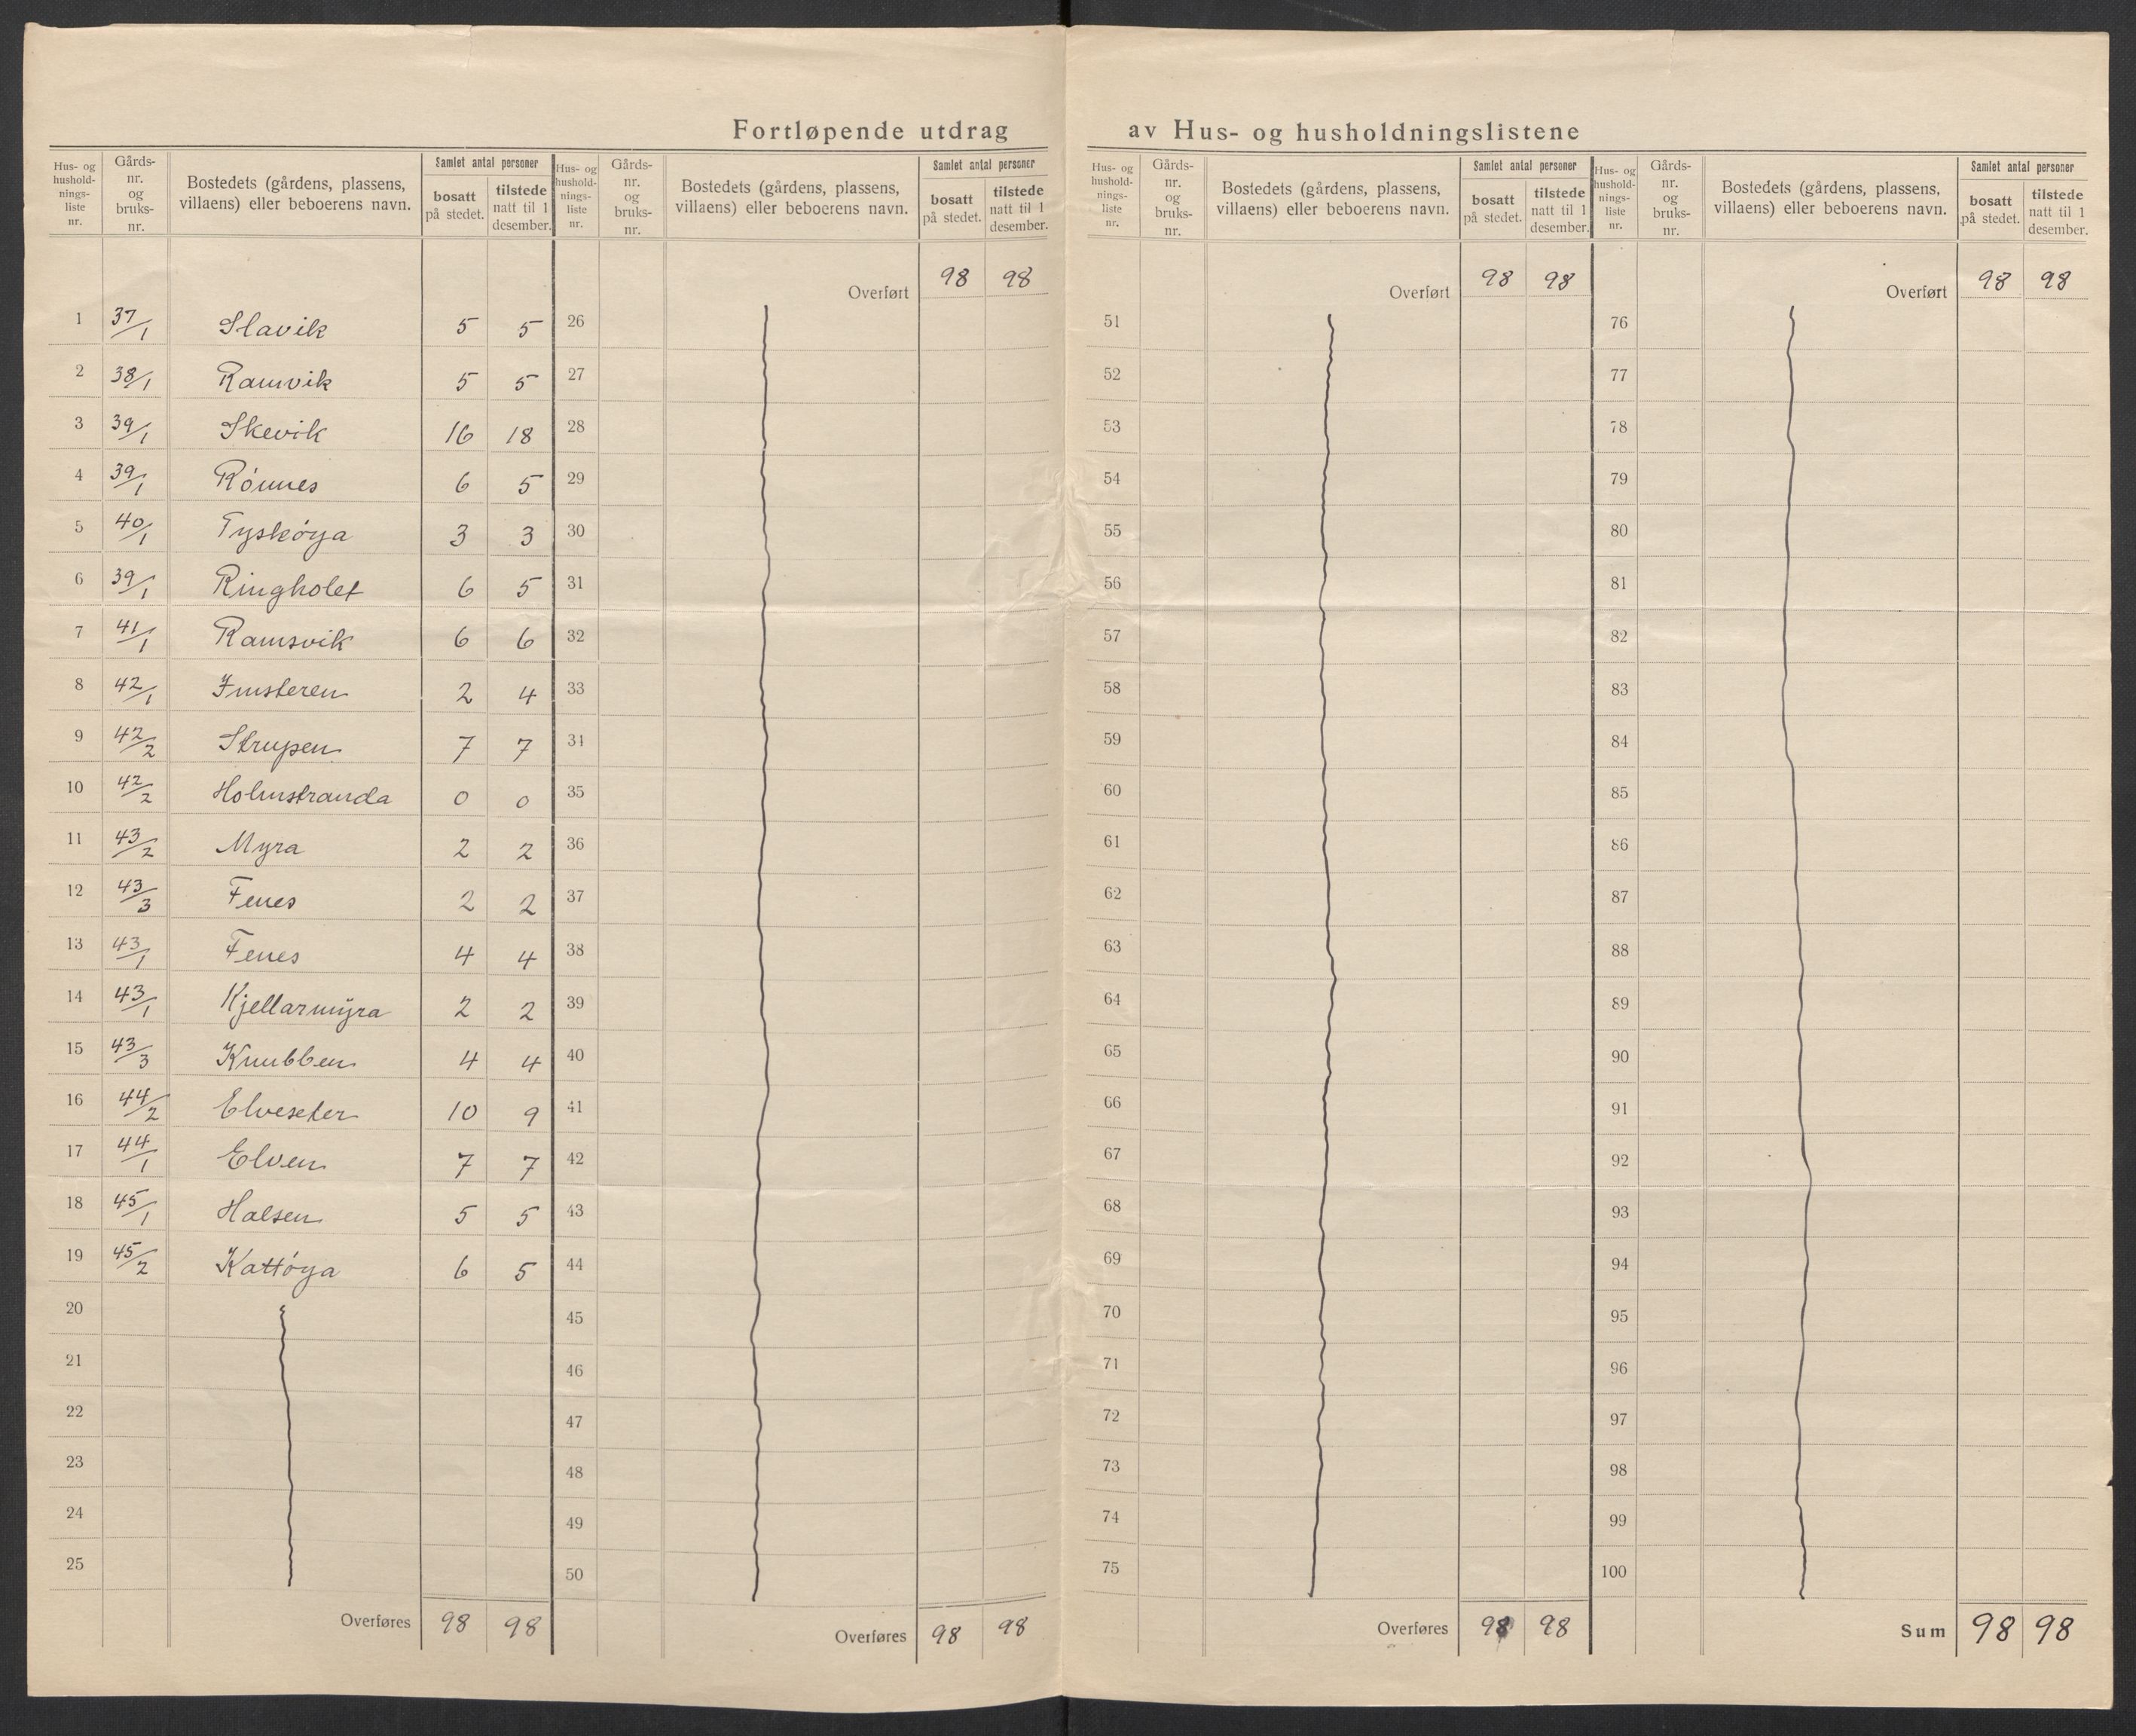 Fortløpende utdrag av Hus- og husholdningslistene
Hus- og husholdnings- liste nr. | Gårds- nr. og bruks- nr. | Bostedets (gårdens, plassens, villaens) eller beboerens navn. | Samlet antal personer bosatt på stedet. | tilstede natt til 1 desember.
1 37/1 Slavik 5 5
2 38/1 Ramvik 5 5
3 39/1 Skevik 16 18
4 39/1 Rónnes 6 5
5 40/1 Tyskóya 3 3
6 39/1 Ringholet 6 5
7 41/1 Ramsvik 6 6
8 42/1 Imsteren 2 4
9 42/2 Strupen 7 7
10 42/2 Holmstranda 0 0
11 43/2 Myra 2 2
12 43/3 Fenes 2 2
13 43/1 Fenes 4 4
14 43/1 Kjellarmyra 2 2
15 43/3 Knubben 4 4
16 44/2 Elveseter 10 9
17 44/1 Elven 7 7
18 45/1 Halsen 5 5
19 45/2 Kattóya 6 5
20
21
22
23
24
25
Overføres 98 98
Hus- og hushold- nings- liste nr. | Gårds- nr. og bruks- nr. | Bostedets (gårdens, plassens, villaens) eller beboerens navn. | Samlet antal personer bosatt på stedet. | tilstede natt til 1 desember.
Overført 98 98
26
27
28
29
30
31
32
33
34
35
36
37
38
39
40
41
42
43
44
45
46
47
48
49
50
Overføres 98 98
Hus- og hushold- nings- liste nr. | Gårds- nr. og bruks- nr. | Bostedets (gårdens, plassens, villaens) eller beboerens navn. | Samlet antal personer bosatt på stedet. | tilstede natt til 1 desember.
Overført 98 98
51
52
53
54
55
56
57
58
59
60
61
62
63
64
65
66
67
68
69
70
71
72
73
74
75
Overføres 98 98
Hus- og hushold- nings- liste nr. | Gårds- nr. og bruks- nr. | Bostedets (gårdens, plassens, villaens) eller beboerens navn. | Samlet antal personer bosatt på stedet. | tilstede natt til 1 desember.
Overført 98 98
76
77
78
79
80
81
82
83
84
85
86
87
88
89
90
91
92
93
94
95
96
97
98
99
100
Sum 98 98